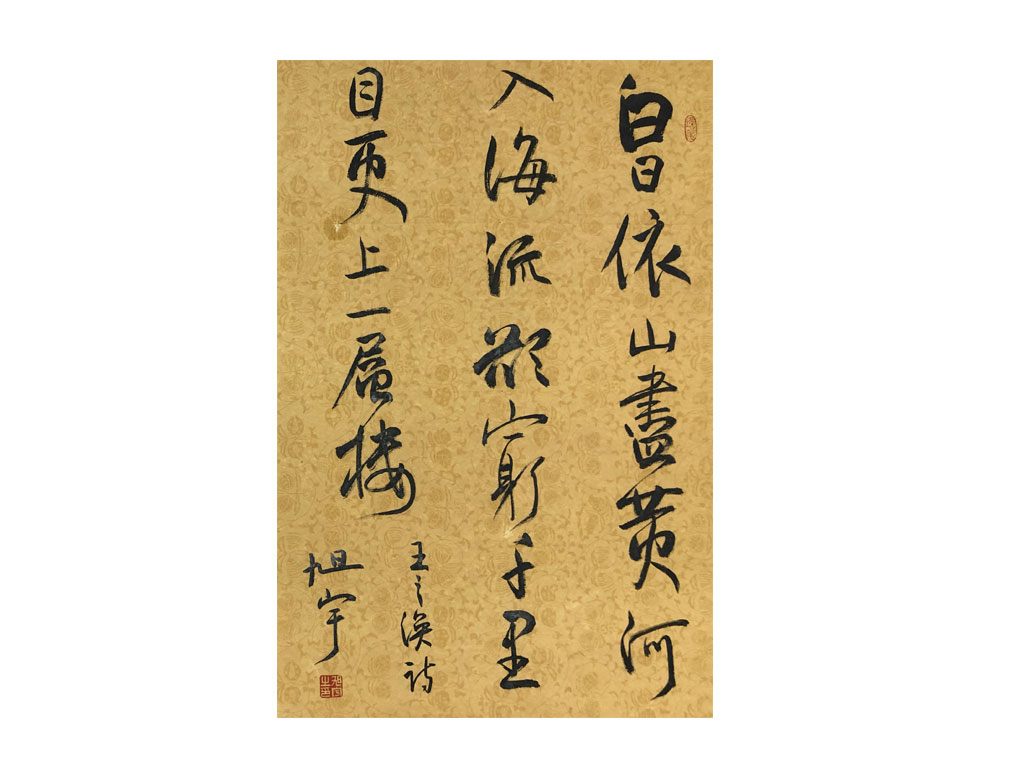 白日依山盡黄河
入海流欲窮千里
目更上一層樓
王之渙詩
旭宇